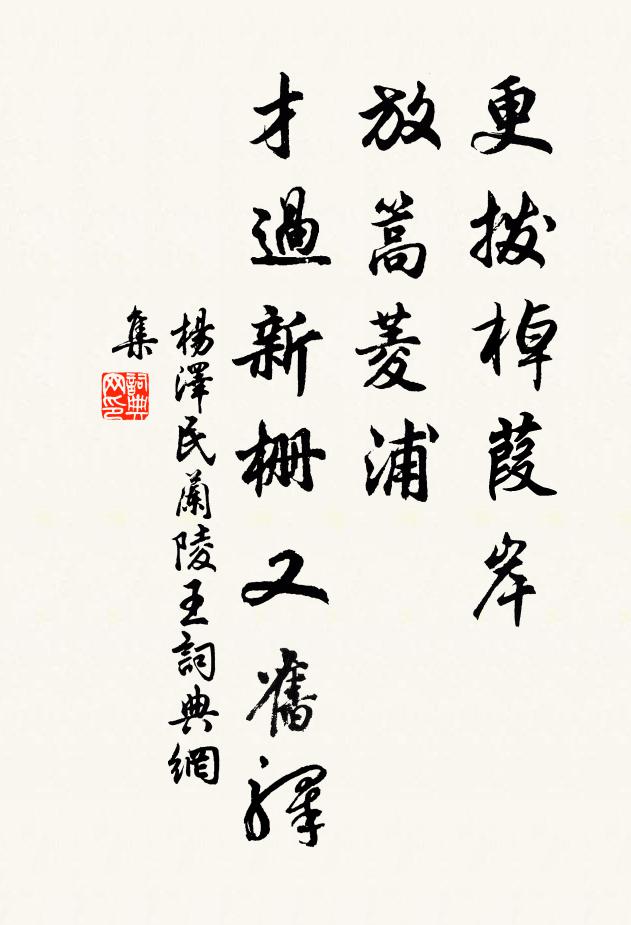 更拨棹葭岸
放篙菱浦
才過新柵又舊驛
楊澤民蘭陵王詞典網
集
詞典
网印